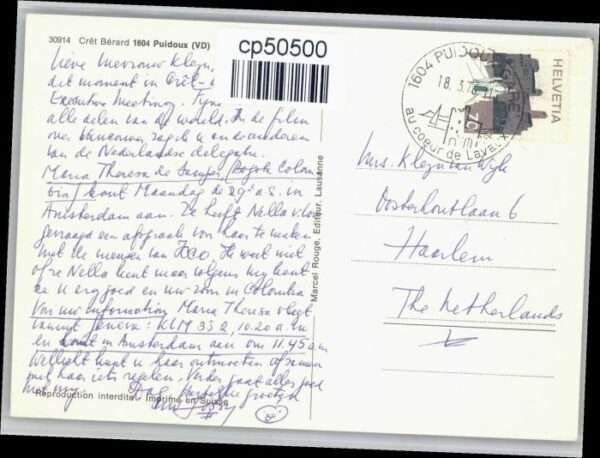 30914 Crêt Bérard 1604 Puidoux (VD)
cp50500
Lieve Mevrouw Kleyn,
dit moment in Crêt-
Executive Meeting.
alle delen van de wereld. In de film
over Vancouver zagen we o.a. anderen
van de Nederlandse delegatie.
Maria Theresa de Bogota Colom
bia) komt Maandag de 29e a.s. in
Amsterdam aan. Ze heeft Nella
gevraagd een afspraak voor haar te maken
met de mensen van ICCO. Ik weet niet
of je Nella kent maar volgens mij kent
ze u erg goed en uw zoon in Colombia
Voor uw information Maria Theresa vliegt
vanuit Geneva: KLM 332, 10.20 a.m
en komt in Amsterdam aan om 11.45 a.m
Wellicht kunt u haar ontmoeten of samen
met haar iets regelen. Verder gaat alles goed
met mij. Dag, hartelijke groetjes
Reproduction interdite - Imprimé en Suisse
Marcel Rouge, Editeur, Lausanne
1604 PUIDOUX-GARE
18.3.76
au coeur de Lavaux
HELVETIA
Mrs. Kleyn van Wijk
Oosterhoutlaan 6
Haarlem
The Netherlands